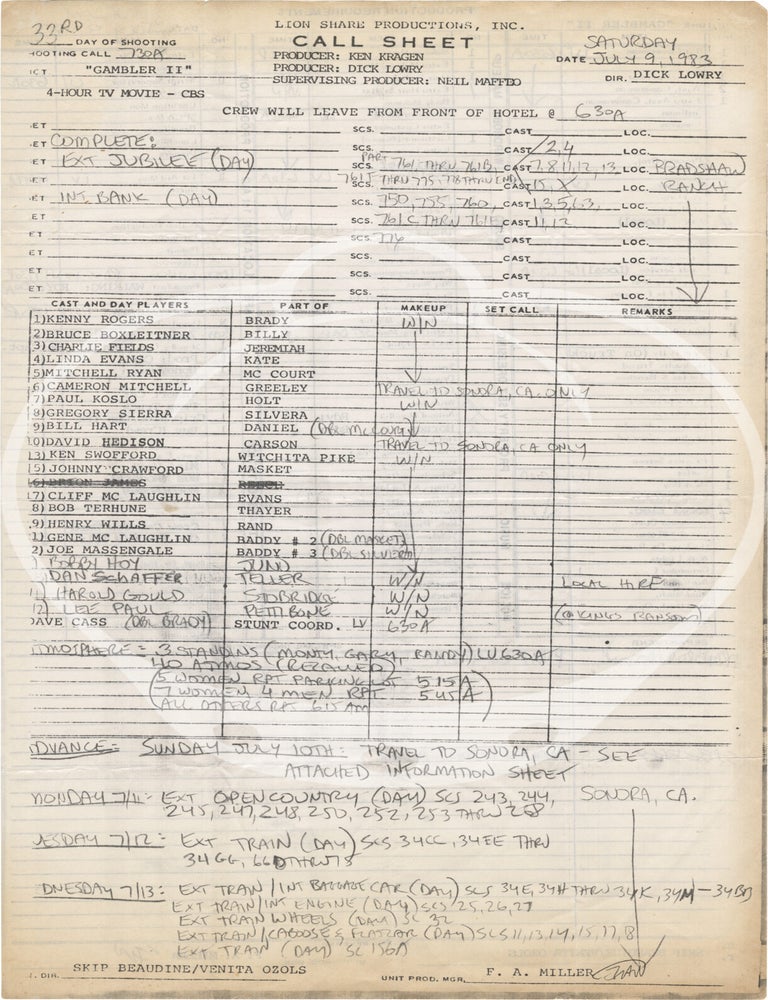 33RD DAY OF SHOOTING
LION SHARE PRODUCTIONS, INC.
SATURDAY
HOOTING CALL 730A
CALL SHEET
DATE JULY 9, 1983
"GAMBLER II"
PRODUCER: KEN KRAGEN
PRODUCER: DICK LOWRY
DIR. DICK LOWRY
4-HOUR TV MOVIE - CBS
SUPERVISING PRODUCER: NEIL MAFFEO
CREW WILL LEAVE FROM FRONT OF HOTEL @ 630A
ET SCS. CAST LOC.
ET COMPLETE: SCS. CAST 2,4 LOC.
ET EXT JUBILEE (DAY) SCS. PART 761 THRU 761B, CAST 7,8,11,12,13, LOC. BRADSHAW
ET 761J THRU 775, 778 THRU END CAST 15, X LOC. RANCH
ET INT. BANK (DAY) SCS. 750, 755, 760, CAST 1,3,5,6,3, LOC.
ET SCS. 761C THRU 761E, CAST 11,12 LOC.
ET SCS. 776 CAST LOC.
ET SCS. CAST LOC.
ET SCS. CAST LOC.
ET SCS. CAST LOC.
CAST AND DAY PLAYERS PART OF MAKEUP SET CALL REMARKS
1)KENNY ROGERS BRADY W/N
2)BRUCE BOXLEITNER BILLY
3)CHARLIE FIELDS JEREMIAH
4)LINDA EVANS KATE
5)MITCHELL RYAN MC COURT
6)CAMERON MITCHELL GREELEY TRAVEL TO SONORA, CA. ONLY
7)PAUL KOSLO HOLT W/N
8)GREGORY SIERRA SILVERA
9)BILL HART DANIEL (DBL McCOURT)
0)DAVID HEDISON CARSON TRAVEL TO SONORA, CA ONLY
13)KEN SWOFFORD WITCHITA PIKE W/N
5)JOHNNY CRAWFORD MASKET
6)BRION JAMES REECH
7)CLIFF MC LAUGHLIN EVANS
8)BOB TERHUNE THAYER
9)HENRY WILLS RAND
1)GENE MC LAUGHLIN BADDY # 2 (DBL MASKET)
2)JOE MASSENGALE BADDY # 3 (DBL SILVERA)
) BOBBY HOY JUNO
) DAN SCHAEFFER TELLER W/N LOCAL HIRE
) HAROLD GOULD STOBRIDGE W/N
12) LEE PAUL PETTIBONE W/N (@ KINGS RANSOM)
DAVE CASS (DBL BRADY) STUNT COORD. LV 630A
TMOSPHERE = 3 STANDINS (MONTY, GARY, RANDY) LV 630A
40 ATMOS (RECALLED)
(5 WOMEN RPT PARKING LOT 515A)
(7 WOMEN 4 MEN RPT 545A)
(ALL OTHERS RPT 615AM)
DVANCE = SUNDAY JULY 10TH: TRAVEL TO SONORA, CA - SEE
ATTACHED INFORMATION SHEET
MONDAY 7/11: EXT OPEN COUNTRY (DAY) SCS 243, 244, SONORA, CA.
245, 247, 248, 250, 252, 253 THRU 268
UESDAY 7/12: EXT TRAIN (DAY) SCS 34CC, 34EE THRU
34GG, 66D THRU 78
DNESDAY 7/13: EXT TRAIN/INT BAGGAGE CAR (DAY) SCS 34E, 34H THRU 34K, 34M-34BB
EXT TRAIN/INT ENGINE (DAY) SCS 25, 26, 27
EXT TRAIN WHEELS (DAY) SC 32
EXT TRAIN/CABOOSE & FLATCAR (DAY) SCS 11, 13, 14, 15, 17, 18
EXT TRAIN (DAY) SC 156A
. DIR. SKIP BEAUDINE/VENITA OZOLS UNIT PROD. MGR. F. A. MILLER